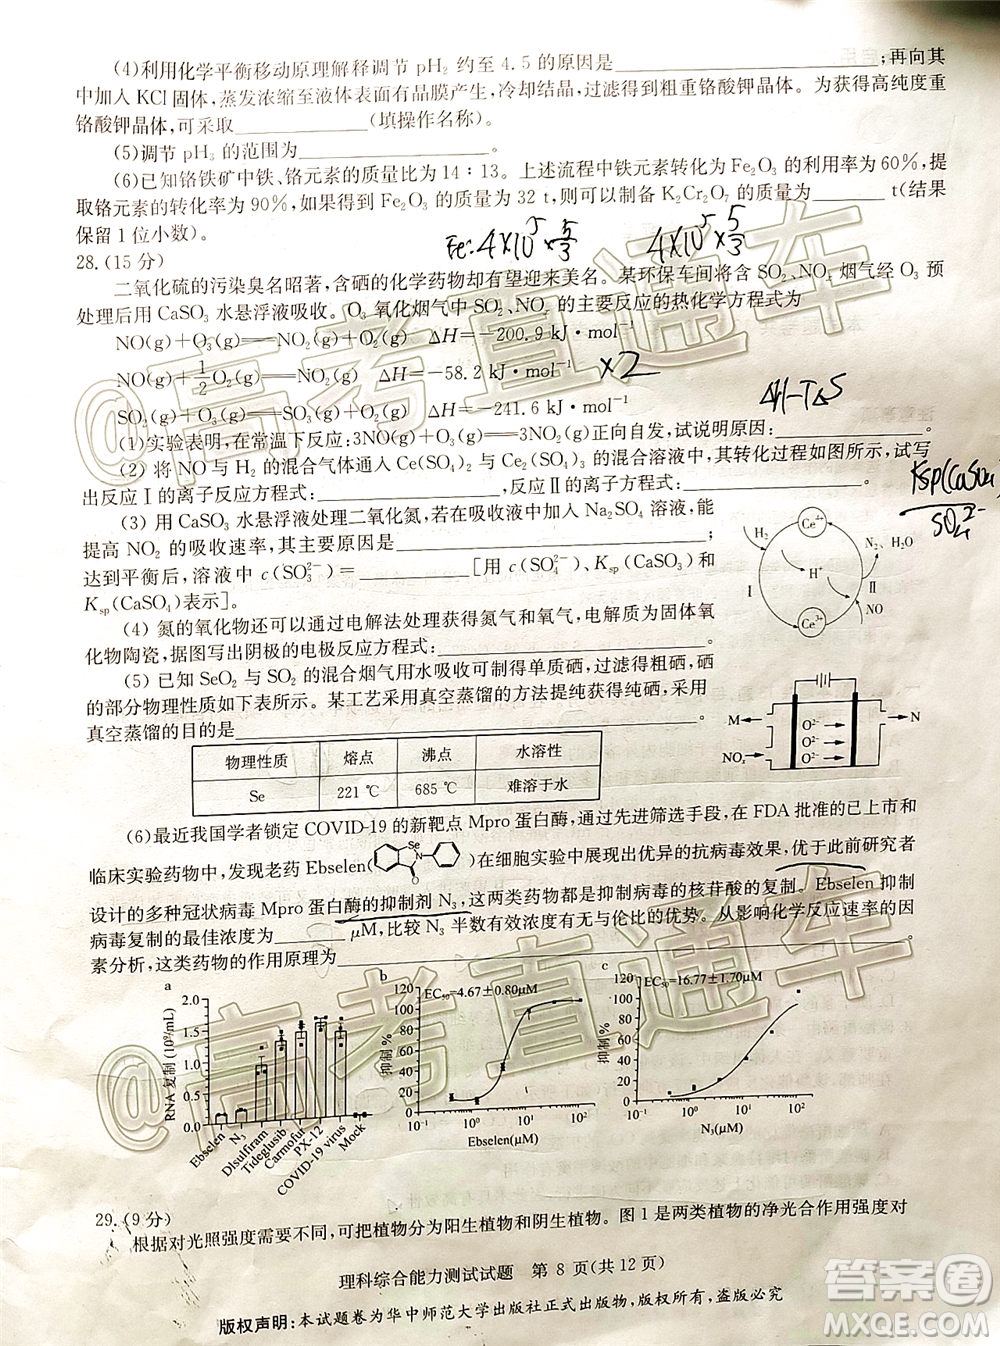 (4)利用化学平衡移动原理解释调节 pH₂ 约至 4.5 的原因是____________;再向其
中加入 KCl 固体,蒸发浓缩至液体表面有晶膜产生,冷却结晶,过滤得到粗重铬酸钾晶体。为获得高纯度重
铬酸钾晶体,可采取____________(填操作名称)。
(5)调节 pH₃ 的范围为____________。
(6)已知铬铁矿中铁、铬元素的质量比为 14∶13。上述流程中铁元素转化为 Fe₂O₃ 的利用率为 60%,提
取铬元素的转化率为 90%,如果得到 Fe₂O₃ 的质量为 32 t,则可制备 K₂Cr₂O₇ 的质量为________t(结果
保留 1 位小数)。
Fe: 4×10⁵×5/3 4×10⁵×5/3
28.(15 分)
二氧化硫的污染臭名昭著,含硒的化学药物却有望迎来美名。某环保车间将含 SO₂、NOₓ 烟气经 O₃ 预
处理后用 CaSO₃ 水悬浮液吸收。O₃ 氧化烟气中 SO₂、NOₓ 的主要反应的热化学方程式为
NO(g)+O₃(g)══NO₂(g)+O₂(g) ΔH=−200.9 kJ·mol⁻¹
NO(g)+1/2O₂(g)══NO₂(g) ΔH=−58.2 kJ·mol⁻¹ ×2
SO₂(g)+O₃(g)══SO₃(g)+O₂(g) ΔH=−241.6 kJ·mol⁻¹
ΔH-TΔS
(1)实验表明,在常温下反应:3NO(g)+O₃(g)══3NO₂(g)正向自发,试说明原因:____________。
(2) 将 NO 与 H₂ 的混合气体通入 Ce(SO₄)₂ 与 Ce₂(SO₄)₃ 的混合溶液中,其转化过程如图所示,试写
出反应Ⅰ的离子反应方程式:____________,反应Ⅱ的离子方程式:____________。
Ksp(CaSO₄)
SO₄²⁻
(3) 用 CaSO₃ 水悬浮液处理二氧化氮,若在吸收液中加入 Na₂SO₄ 溶液,能
提高 NO₂ 的吸收速率,其主要原因是____________
达到平衡后,溶液中 c(SO₃²⁻)=____________[用 c(SO₄²⁻)、Ksp(CaSO₃)和
Ksp(CaSO₄)表示]。
H₂
Ce⁴⁺
N₂、H₂O
Ⅰ
H⁺
Ⅱ
NO
Ce³⁺
(4) 氮的氧化物还可以通过电解法处理获得氮气和氧气,电解质为固体氧
化物陶瓷,据图写出阴极的电极反应方程式:____________。
(5) 已知 SeO₂ 与 SO₂ 的混合烟气用水吸收可制得单质硒,过滤得粗硒、硒
的部分物理性质如下表所示。某工艺采用真空蒸馏的方法提纯获得纯硒,
真空蒸馏的目的是____________。
M
N
NOₓ
O²⁻
O²⁻
O²⁻
物理性质 熔点 沸点 水溶性
Se 221 ℃ 685 ℃ 难溶于水
(6)最近我国学者锁定 COVID-19 的新靶点 Mpro 蛋白酶,通过先进筛选手段,在 FDA 批准的已上市和
临床实验药物中,发现老药 Ebselen(
Se
N
O
)在细胞实验中展现出优异的抗病毒效果,优于此前研究者
设计的多种冠状病毒 Mpro 蛋白酶的抑制剂 N₃,这两类药物都是抑制病毒的核苷酸的复制。Ebselen 抑制
病毒复制的最佳浓度为________μM,比较 N₃ 半数有效浓度有无与伦比的优势。从影响化学反应速率的因
素分析,这类药物的作用原理为____________。
a
RNA 复制 (10⁹/mL)
2.0
1.5
2.0
1.0
0.5
0.0
Ebselen
N₃
DIsulfiram
Tideglusib
Carmofur
PX-12
COVID-19 virus
Mock
b
EC₅₀=4.67±0.80μM
抑制%
120
100
80
60
40
20
0
10⁻¹ 10⁰ 10¹ 10²
Ebselen(μM)
c
EC₅₀=16.77±1.70μM
抑制%
120
100
80
60
40
20
0
10⁻¹ 10⁰ 10¹ 10²
N₃(μM)
29.(9 分)
根据对光照强度需要不同,可把植物分为阳生植物和阴生植物。图 1 是两类植物的净光合作用强度对
理科综合能力测试试题 第 8 页(共 12 页)
版权声明:本试题卷为华中师范大学出版社正式出版物,版权所有,盗版必究
@高考直通车
@高考直通车
答案圈
MXQE.COM